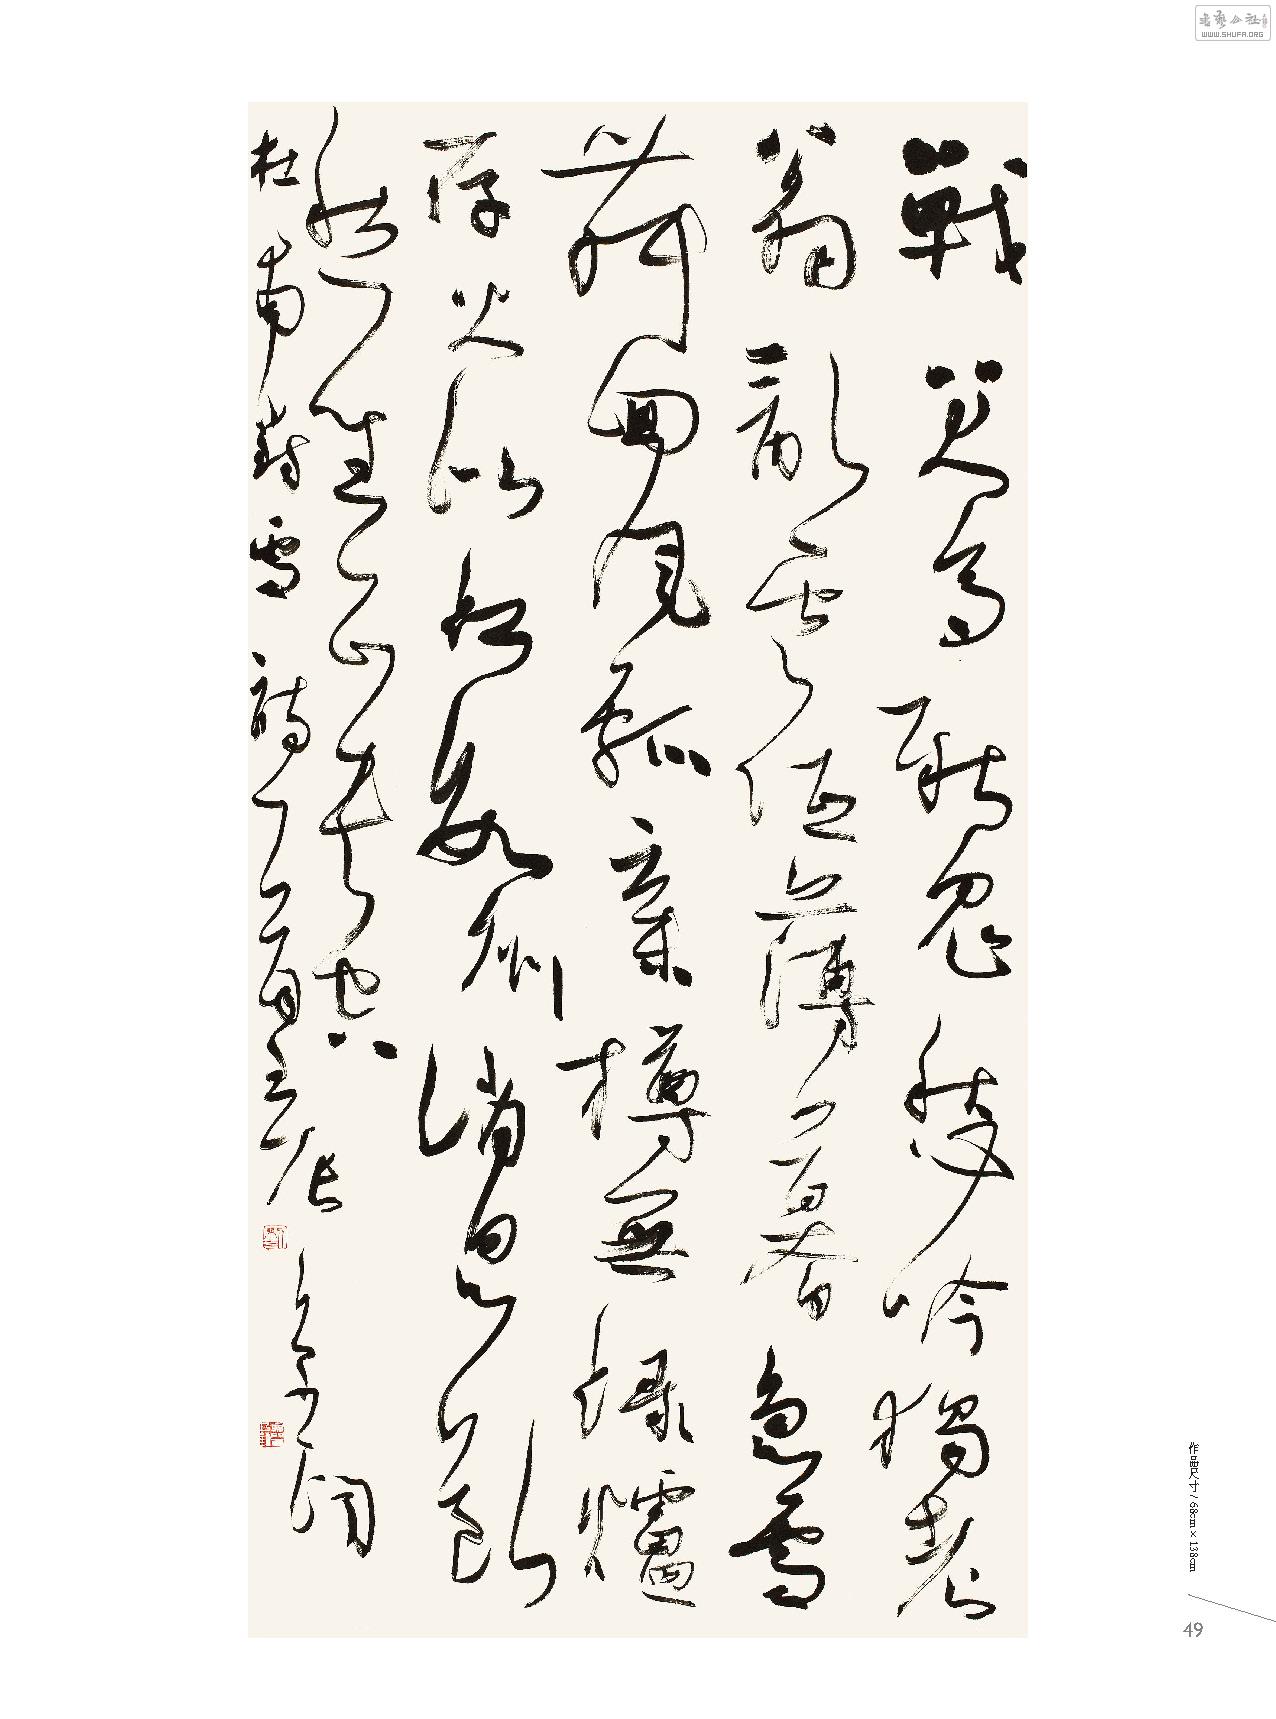 戰哭多新鬼愁吟獨老
翁亂雲低薄暮急雪
舞回風瓢棄樽無綠爐
存火似紅數州消息斷
愁坐正書空
杜甫對雪詩一首
作品尺寸 / 68cm×138cm
49
書藝公社
WWW.SHUFA.ORG